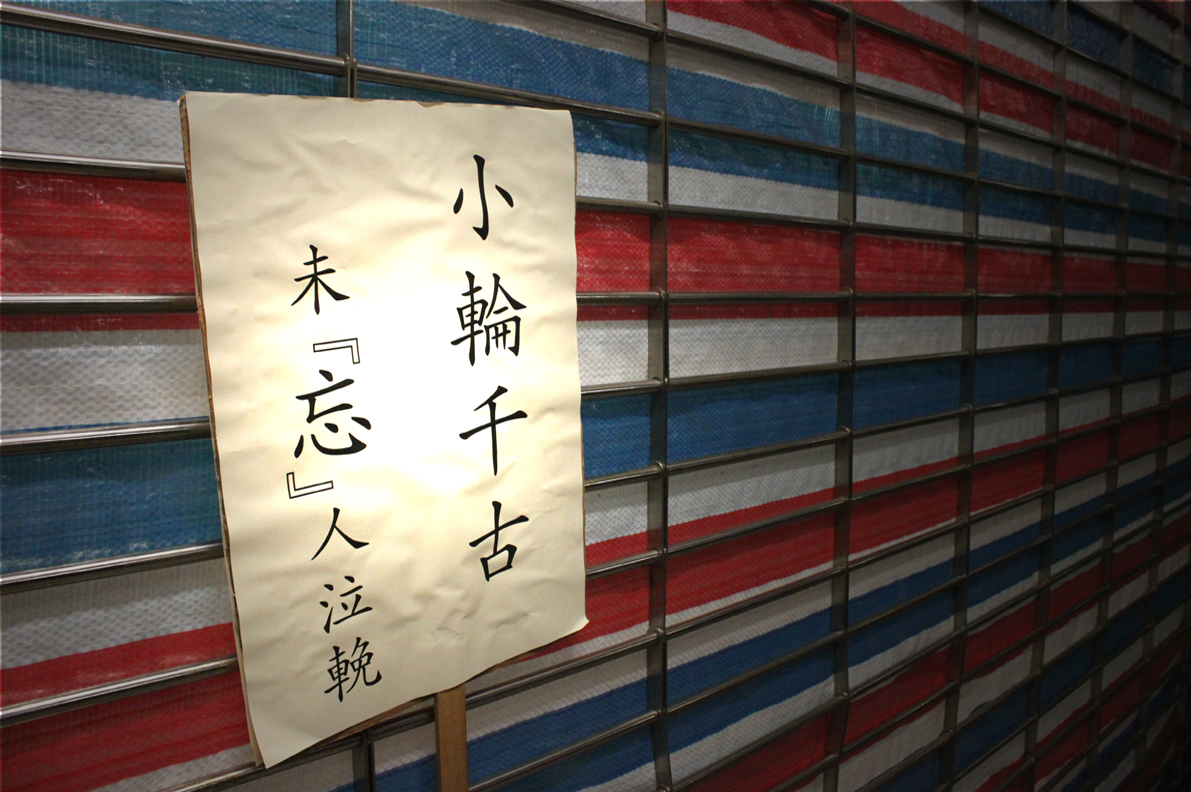 小輪千古
未『忘』人泣輓